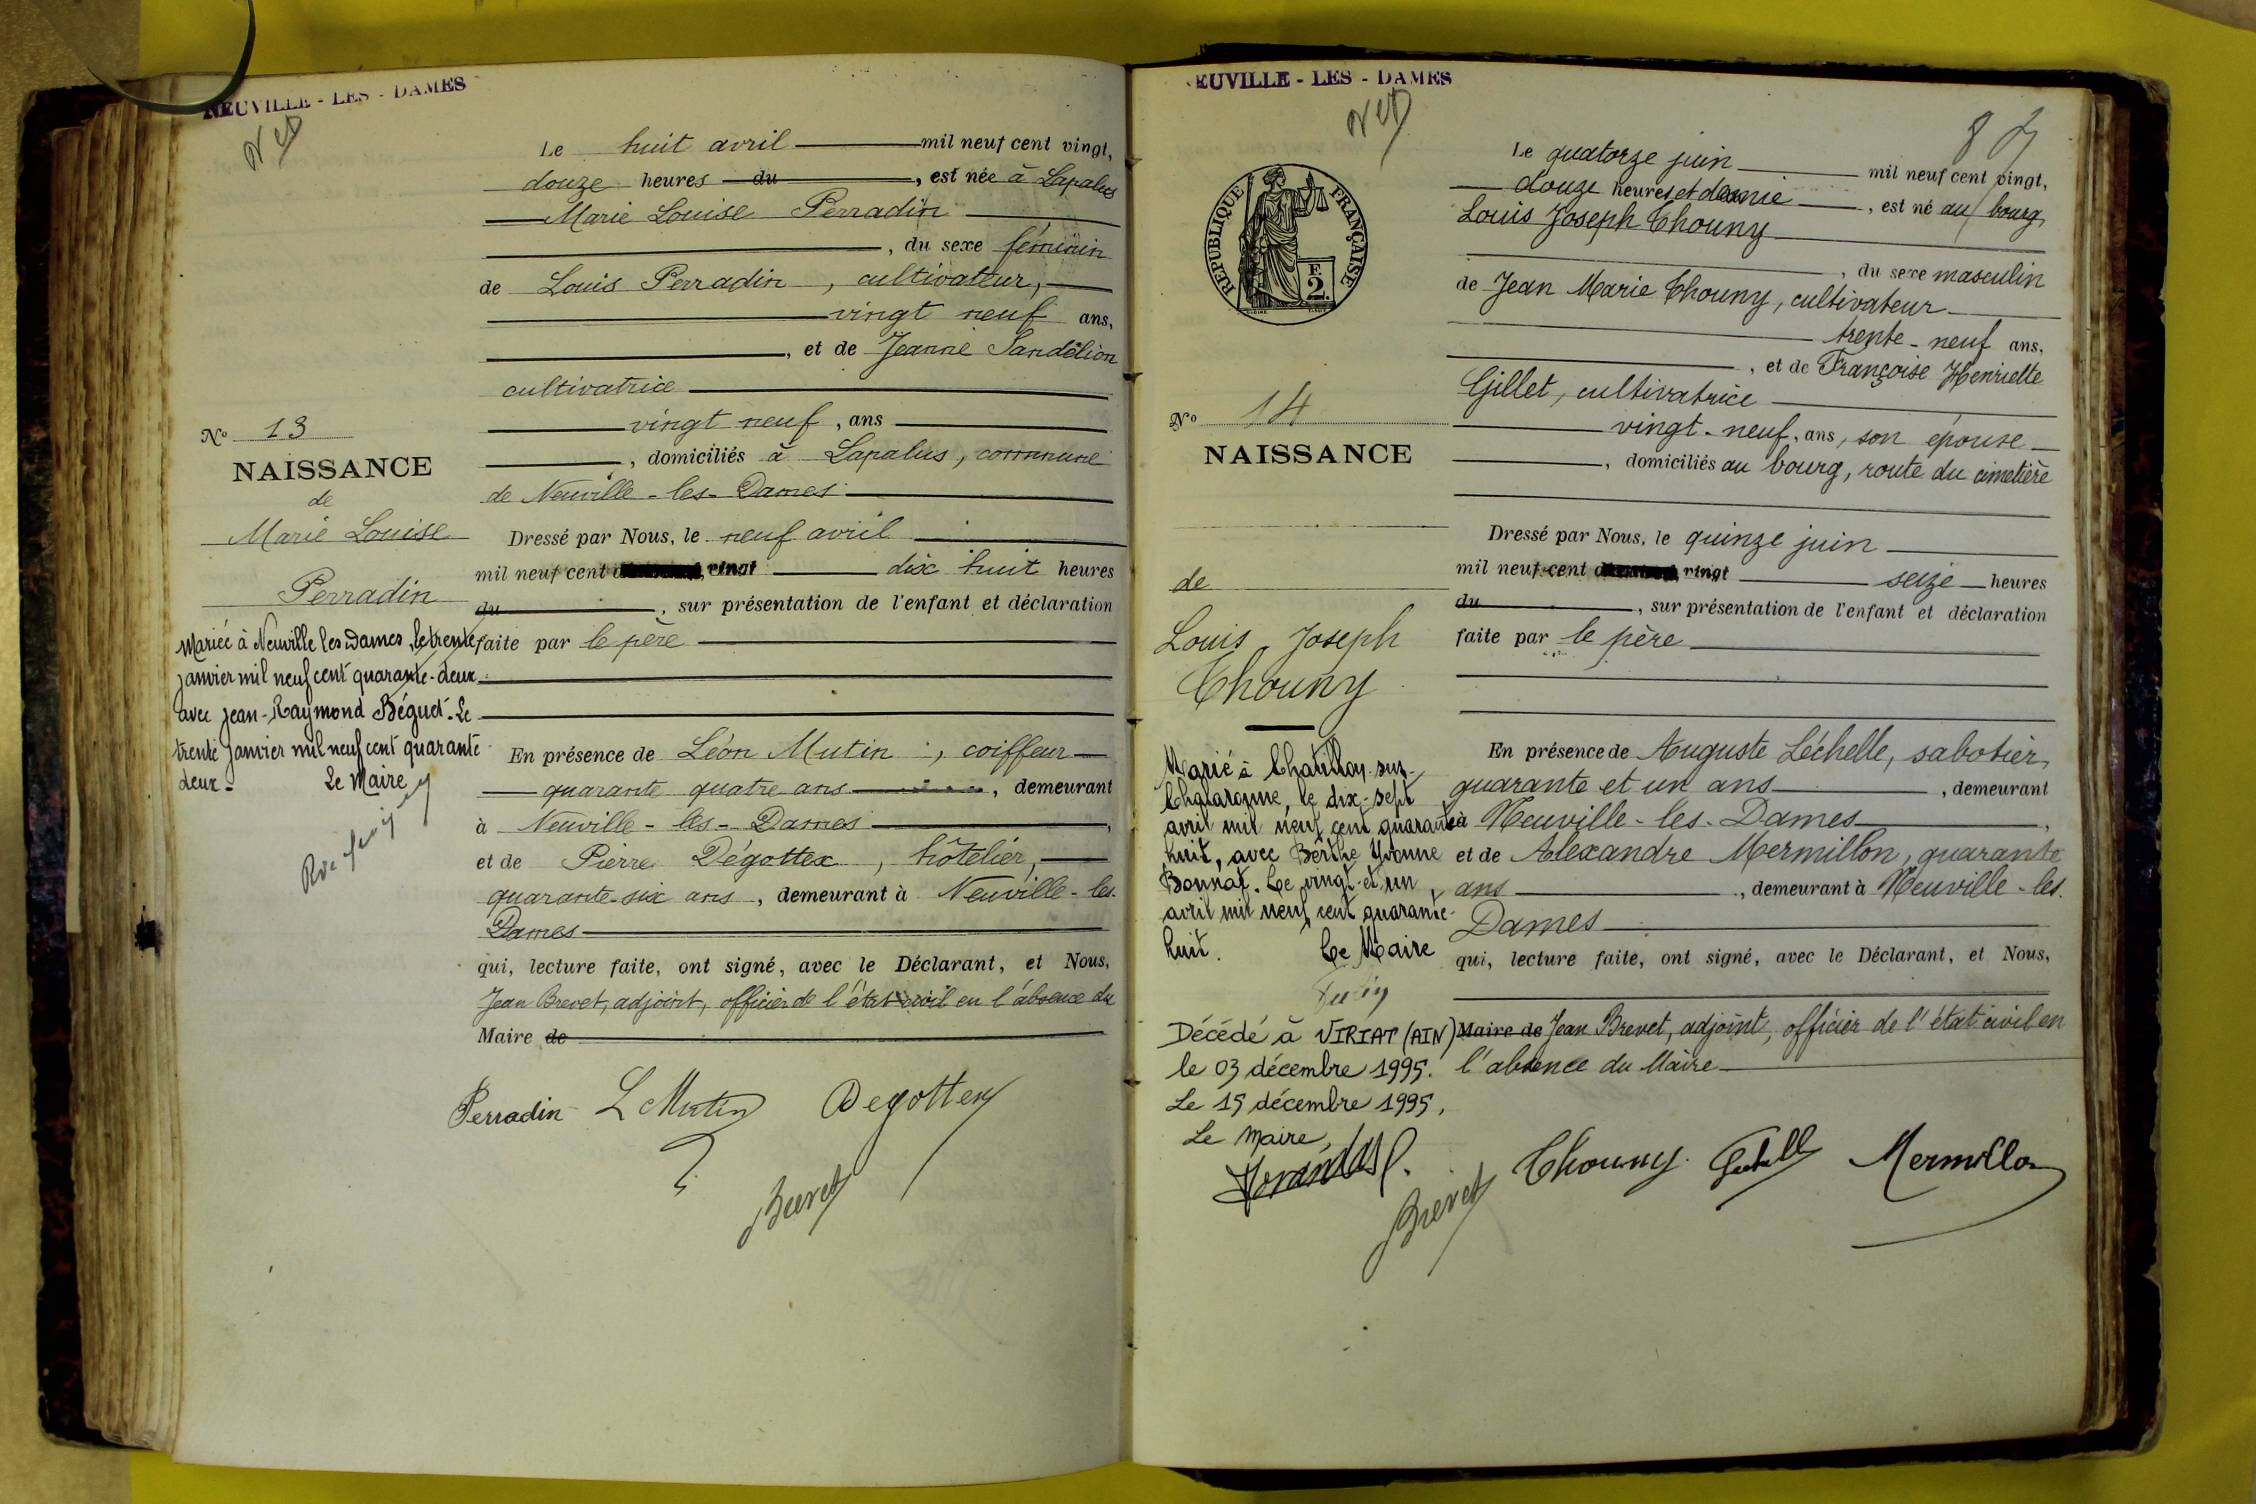 NEUVILLE - LES - DAMES
Le huit avril mil neuf cent vingt,
douze heures du, est née à Lapalus
Marie Louise Perradin
, du sexe féminin
de Louis Perradin, cultivateur,
vingt neuf ans,
, et de Jeanne Sandélion
cultivatrice
vingt neuf, ans
, domiciliés à Lapalus, commune
de Neuville-les-Dames
N° 13
NAISSANCE
de
Marie Louise
Perradin
Dressé par Nous, le neuf avril
mil neuf cent vingt dix huit heures
du, sur présentation de l'enfant et déclaration
faite par le père
Mariée à Neuville les Dames, le trente
janvier mil neuf cent quarante-deux
avec Jean-Raymond Béguet. Le
trente janvier mil neuf cent quarante
deux. Le Maire
En présence de Léon Mutin, coiffeur
quarante quatre ans, demeurant
à Neuville-les-Dames,
et de Pierre Dégottex, hôtelier,
quarante-six ans, demeurant à Neuville-les-
Dames
qui, lecture faite, ont signé, avec le Déclarant, et Nous,
Jean Brevet, adjoint, officier de l'état civil en l'absence du
Maire de
Perradin L Mutin Degottex
Brevet
EUVILLE - LES - DAMES
RÉPUBLIQUE FRANÇAISE
F.
2.
Le quatorze juin mil neuf cent vingt,
douze heures et demie, est né au bourg
Louis Joseph Chouny
, du sexe masculin
de Jean Marie Chouny, cultivateur
trente-neuf ans,
, et de Françoise Henriette
Gillet, cultivatrice
vingt-neuf, ans, son épouse
, domiciliés au bourg, route du cimetière
N° 14
NAISSANCE
de
Louis Joseph
Chouny
Dressé par Nous, le quinze juin
mil neuf cent vingt seize heures
du, sur présentation de l'enfant et déclaration
faite par le père
Marié à Chatillon-sur-
Chalaronne, le dix-sept
avril mil neuf cent quarante
huit, avec Berthe Yvonne
Bonnat. Le vingt-et-un
avril mil neuf cent quarante-
huit. Le Maire
Décédé à VIRIAT (AIN)
le 03 décembre 1995.
Le 15 décembre 1995,
Le Maire,
En présence de Auguste Léchelle, sabotier,
quarante et un ans, demeurant
à Neuville-les-Dames,
et de Alexandre Mermillon, quarante
ans, demeurant à Neuville-les-
Dames
qui, lecture faite, ont signé, avec le Déclarant, et Nous,
Maire de Jean Brevet, adjoint, officier de l'état civil en
l'absence du Maire
Chouny Mermillon
Brevet